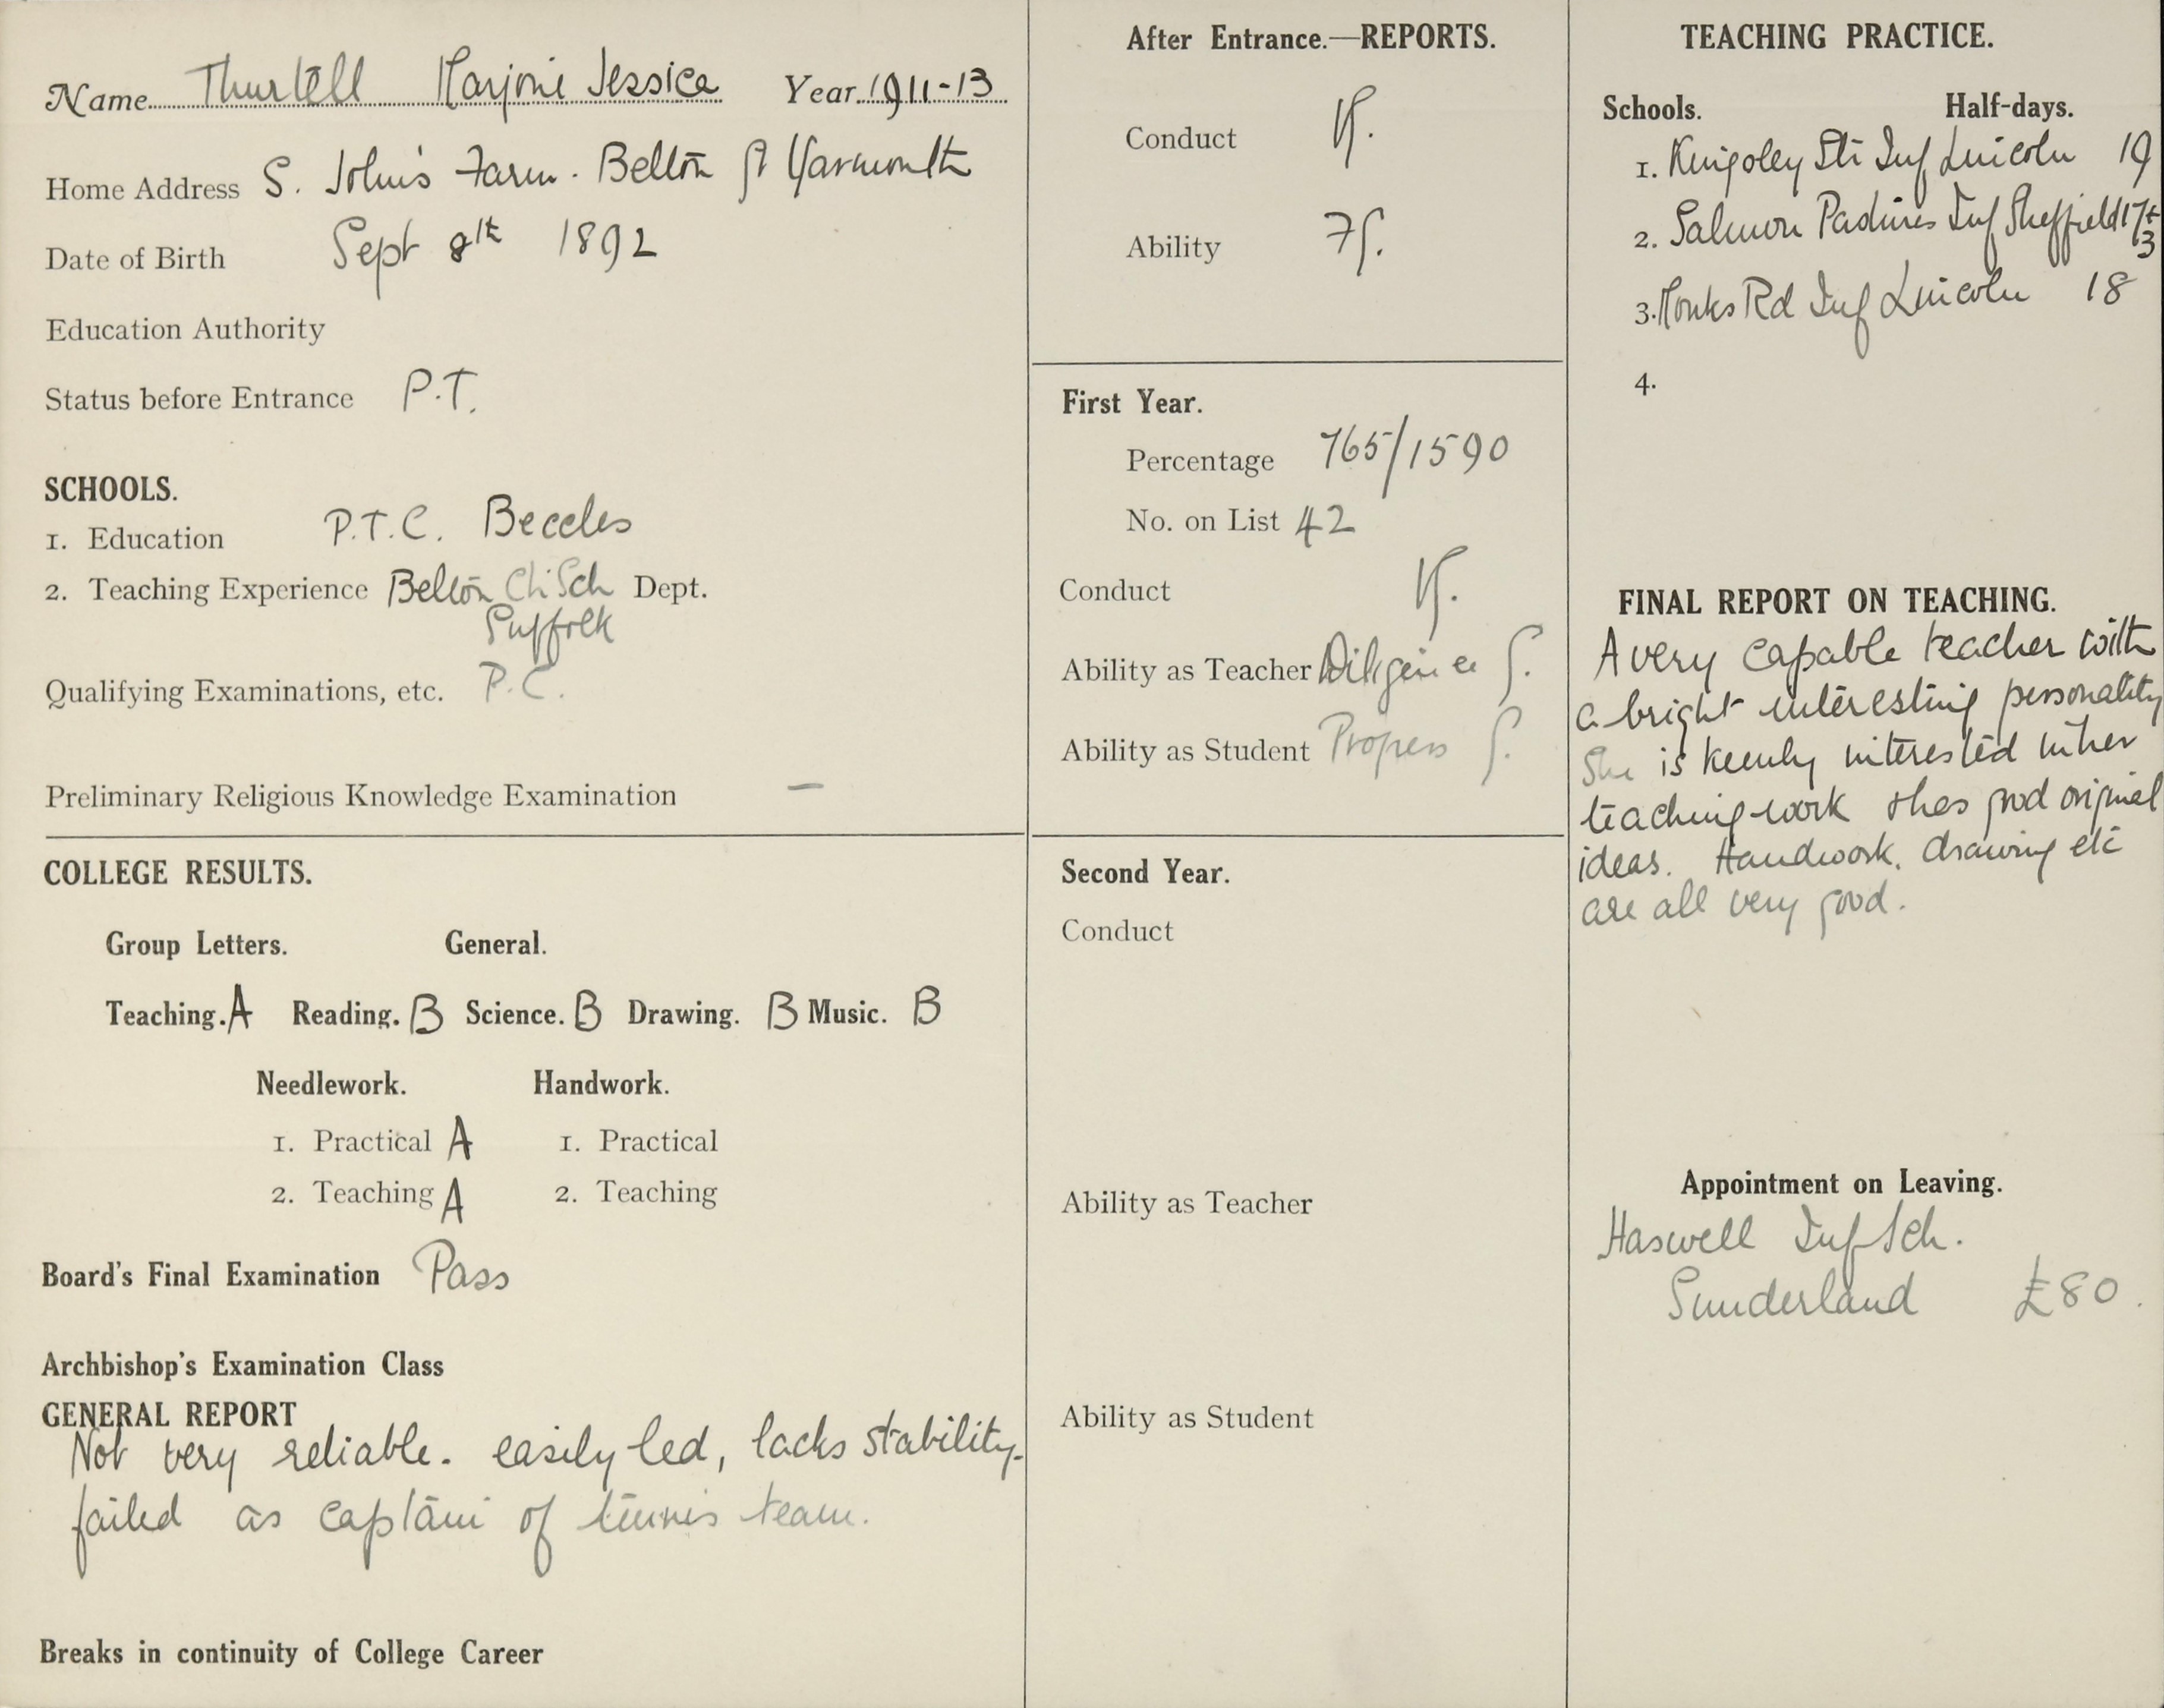 Name Thurtell Marjorie Jessica Year 1911-13
Home Address S. John's Farm. Belton Gt Yarmouth
Date of Birth Sept 8th 1892
Education Authority
Status before Entrance P.T.
SCHOOLS.
1. Education P.T.C. Beccles
2. Teaching Experience Belton Ch Sch Dept.
Suffolk
Qualifying Examinations, etc. P.C.
Preliminary Religious Knowledge Examination —
COLLEGE RESULTS.
Group Letters. General.
Teaching. A Reading. B Science. B Drawing. B Music. B
Needlework. Handwork.
1. Practical A 1. Practical
2. Teaching A 2. Teaching
Board's Final Examination Pass
Archbishop's Examination Class
GENERAL REPORT
Not very reliable. easily led, lacks stability.
failed as captain of tennis team.
Breaks in continuity of College Career
After Entrance.—REPORTS.
Conduct
Ability
First Year.
Percentage 765/1590
No. on List 42
Conduct
Ability as Teacher Diligence G.
Ability as Student Progress G.
Second Year.
Conduct
Ability as Teacher
Ability as Student
TEACHING PRACTICE.
Schools. Half-days.
1. Kingsley St Inf Lincoln 19
2. Salmon Pastures Inf Sheffield 17+
3
3. Monks Rd Inf Lincoln 18
4.
FINAL REPORT ON TEACHING.
A very capable teacher with
a bright interesting personality
She is keenly interested in her
teaching work & has good original
ideas. Handwork, drawing etc
are all very good.
Appointment on Leaving.
Haswell Inf Sch.
Sunderland £80.